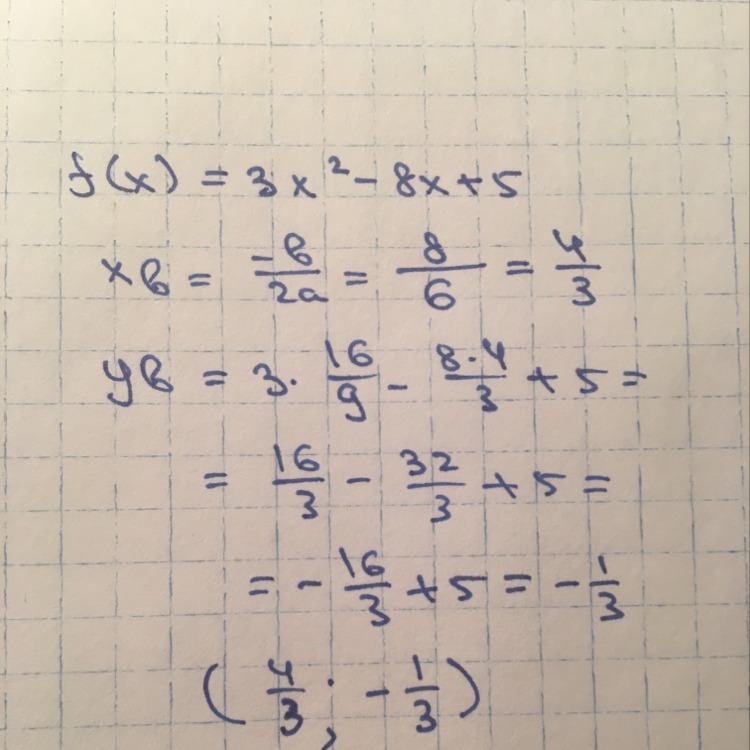 f(x) = 3x² - 8x + 5
xв = -в/2a = 8/6 = 4/3
yв = 3 · 16/9 - 8·4/3 + 5 =
= 16/3 - 32/3 + 5 =
= - 16/3 + 5 = - 1/3
(4/3 ; - 1/3)